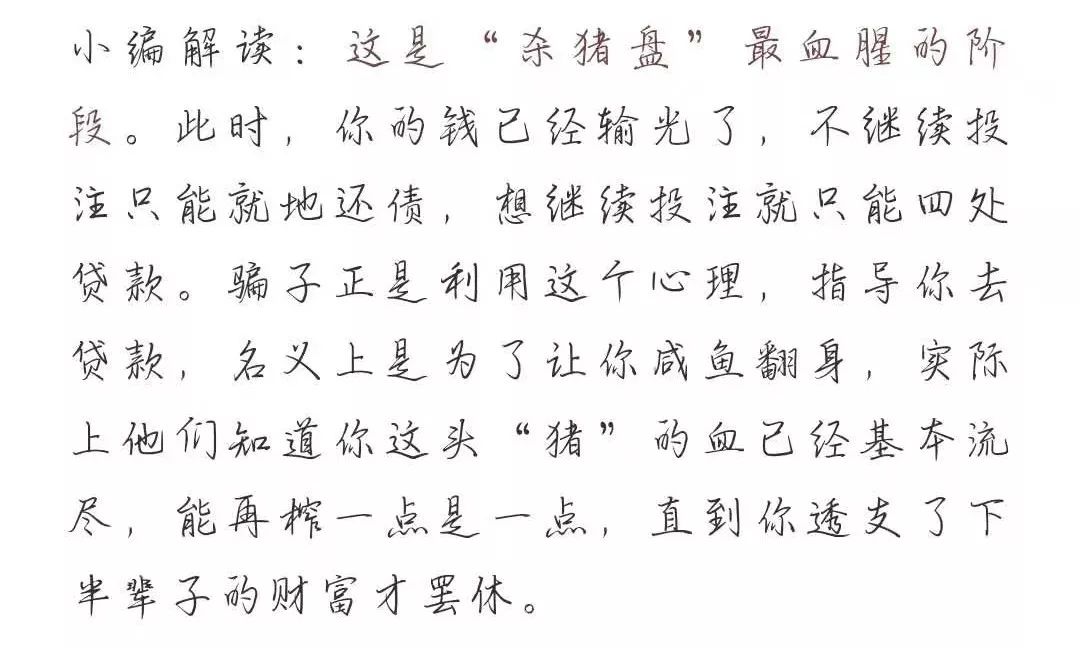 小编解读：这是“杀猪盘”最血腥的阶
段。此时，你的钱已经输光了，不继续投
注只能就地还债，想继续投注就只能四处
贷款。骗子正是利用这个心理，指导你去
贷款，名义上是为了让你咸鱼翻身，实际
上他们知道你这头“猪”的血已经基本流
尽，能再榨一点是一点，直到你透支了下
半辈子的财富才罢休。